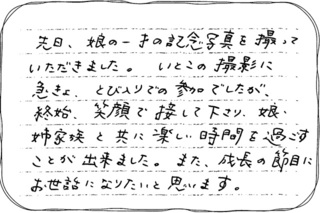 先日、娘の一才の記念写真を撮って
いただきました。 いとこの撮影に
急きょ、とび入りでの参加でしたが、
終始、笑顔で接して下さり、娘・
姉家族と共に楽しい時間を過ごす
ことが出来ました。また、成長の節目に
お世話になりたいと思います。